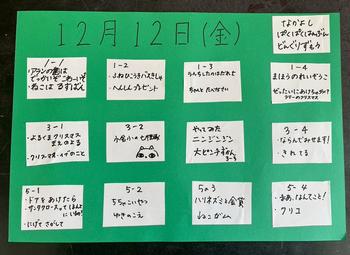 12月12日(金)
なかよし
ぱくぱくはんぶん
どんぐりずもう
1-1
・アランの歯は
でっかいぞ こわーいぞ
・ねこは るすばん
1-2
・ふねひこうきバスきしゃ
・へんしんプレゼント
1-3
・ちゃんと たべなさい
1-4
・まほうのれいぞうこ
・ぜったいに
クリスマス
3-1
・よるくま クリスマス
まえのよる
・クリスマス・イブのこと
3-2
・小金小の七不思議
やってみた
ニンジンジン
大ピンチずかん
3-3
3-4
・ならんでみせます!
・きれてる
5-1
・ドアをあけたら
・サンタクロースって ほんとに
いるの?
・にげて さがして
5-2
・55のこいやつ
・ゆきのこえ
5の3
・ハリネズミと金貨
・ねこガム
5-4
・ああ、なんてこと!
・クリコ